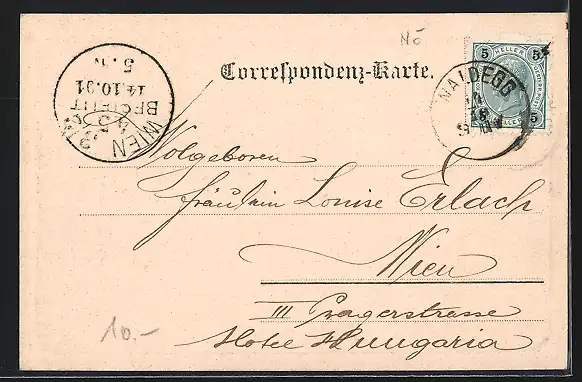 NÖ
Correspondenz-Karte.
5 HELLER 5
WALDEGG
WIEN
BESTELLT
14.10.01
5.N
Wolgeboren
Fräulein Louise Erlach
Wien
III Pragerstrasse
Hotel Hungaria
10.-